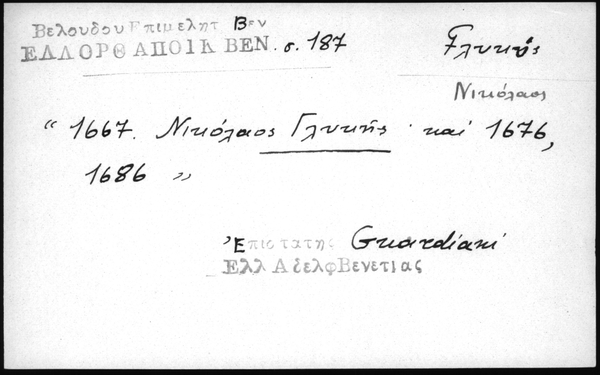 Βελουδου Επιμελητ Βεν
ΕΛΛΟΡΘ ΑΠΟΙΚ ΒΕΝ. σ. 187
Γλυκύς
Νικόλαος
“ 1667. Νικόλαος Γλυκῆς · καί 1676,
1686 ”
Ἐπιστατης Guardiani
Ελλ ΑδελφΒενετιας